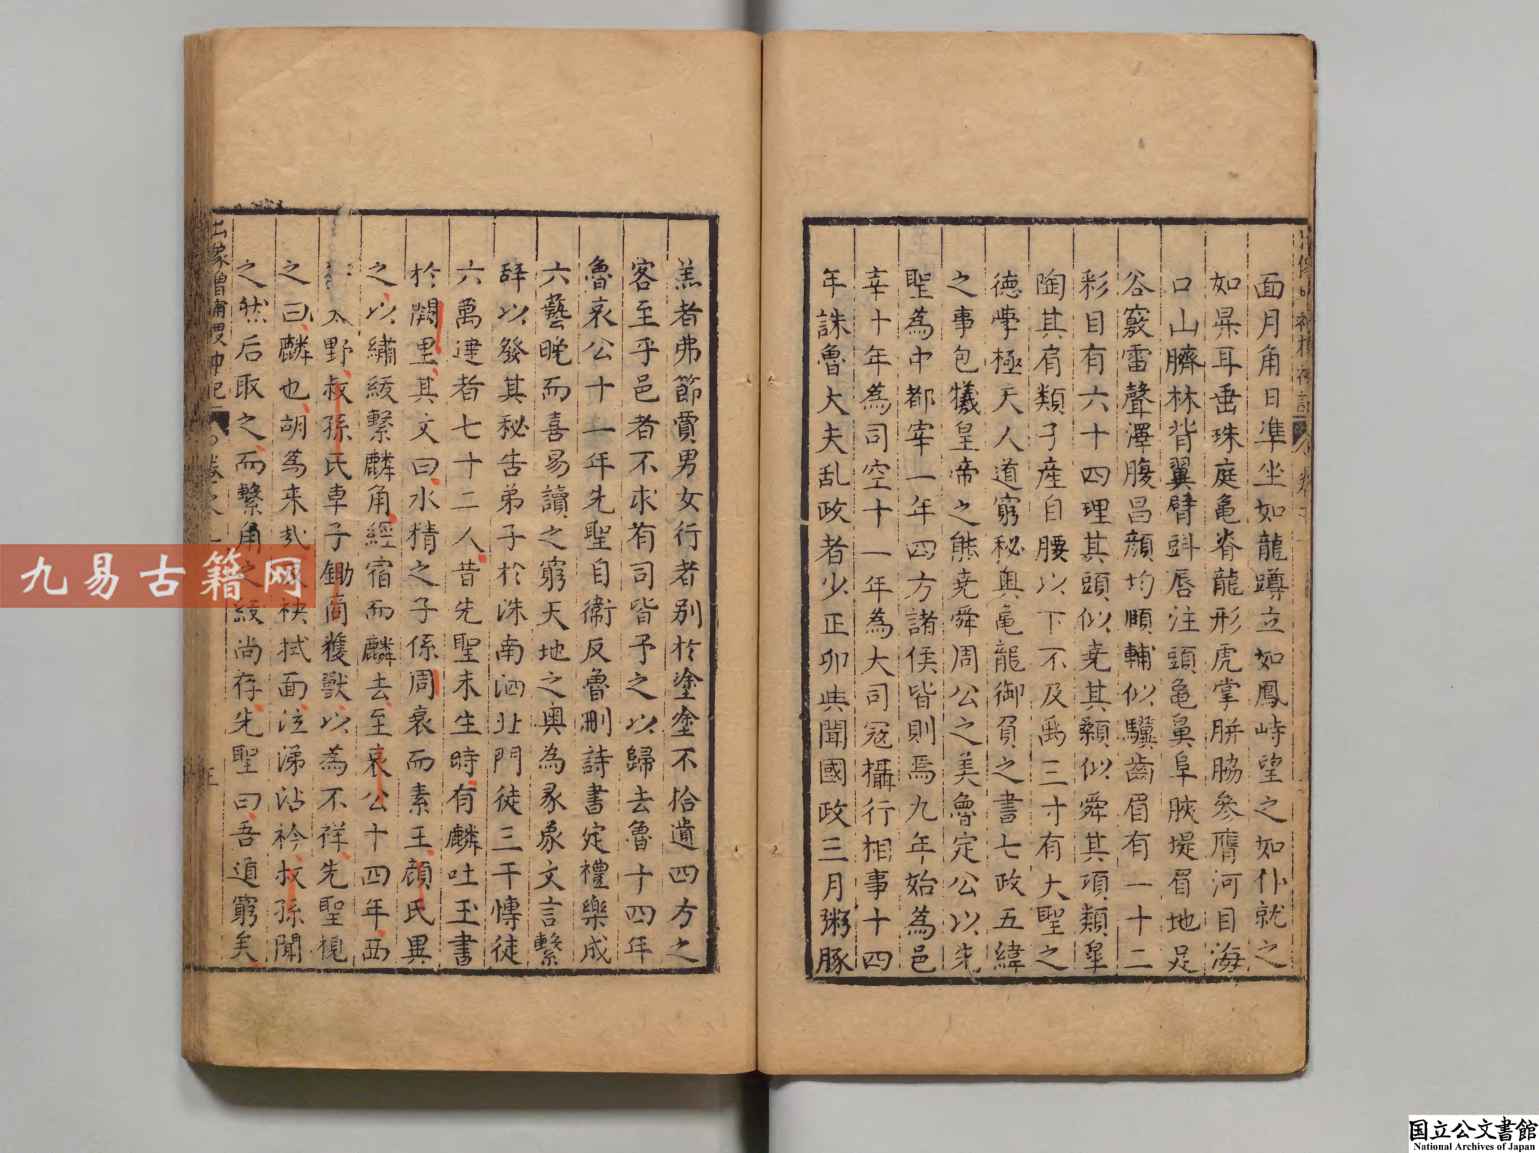 面月角日準坐如龍蹲立如鳳峙望之如仆就之
如昇耳垂珠庭龜脊龍形虎掌胼脇參膺河目海
口山臍林背翼臂斗唇注頭龜鼻阜脥堤眉地足
谷竅雷聲澤腹昌顏均頤輔似驥齒眉有一十二
彩目有六十四理其頭似堯其顙似舜其項類皐
陶其肩類子產自腰以下不及禹三寸有大聖之
德學極天人道窮秘奥龜龍御負之書七政五緯
之事包犧皇帝之熊堯舜周公之美魯定公以先
聖為中都宰一年四方諸侯皆則焉九年始為邑
宰十年為司空十一年為大司冦攝行相事十四
年誅魯大夫乱政者少正卯與聞國政三月粥豚
羔者弗節賈男女行者別於塗塗不拾遺四方之
客至乎邑者不求有司皆予之以歸去魯十四年
魯哀公十一年先聖自衛反魯刪詩書定禮樂成
六藝晚而喜易讀之窮天地之奥為彖象文言繫
辞以發其秘告弟子於洙南泗北門徒三千慱徒
六萬達者七十二人昔先聖未生時有麟吐玉書
於闕里其文曰水精之子係周衰而素王顔氏異
之以繡紱繫麟角經宿而麟去至哀公十四年西
大野叔孫氏車子鋤商獲獸以為不祥先聖視
之曰麟也胡為来㢤袂拭面泣涕沾衿叔孫聞
之然后取之而繫角之紱尚存先聖曰吾道窮矣
出像增補搜神記
卷之一
九易古籍网
国立公文書館
National Archives of Japan